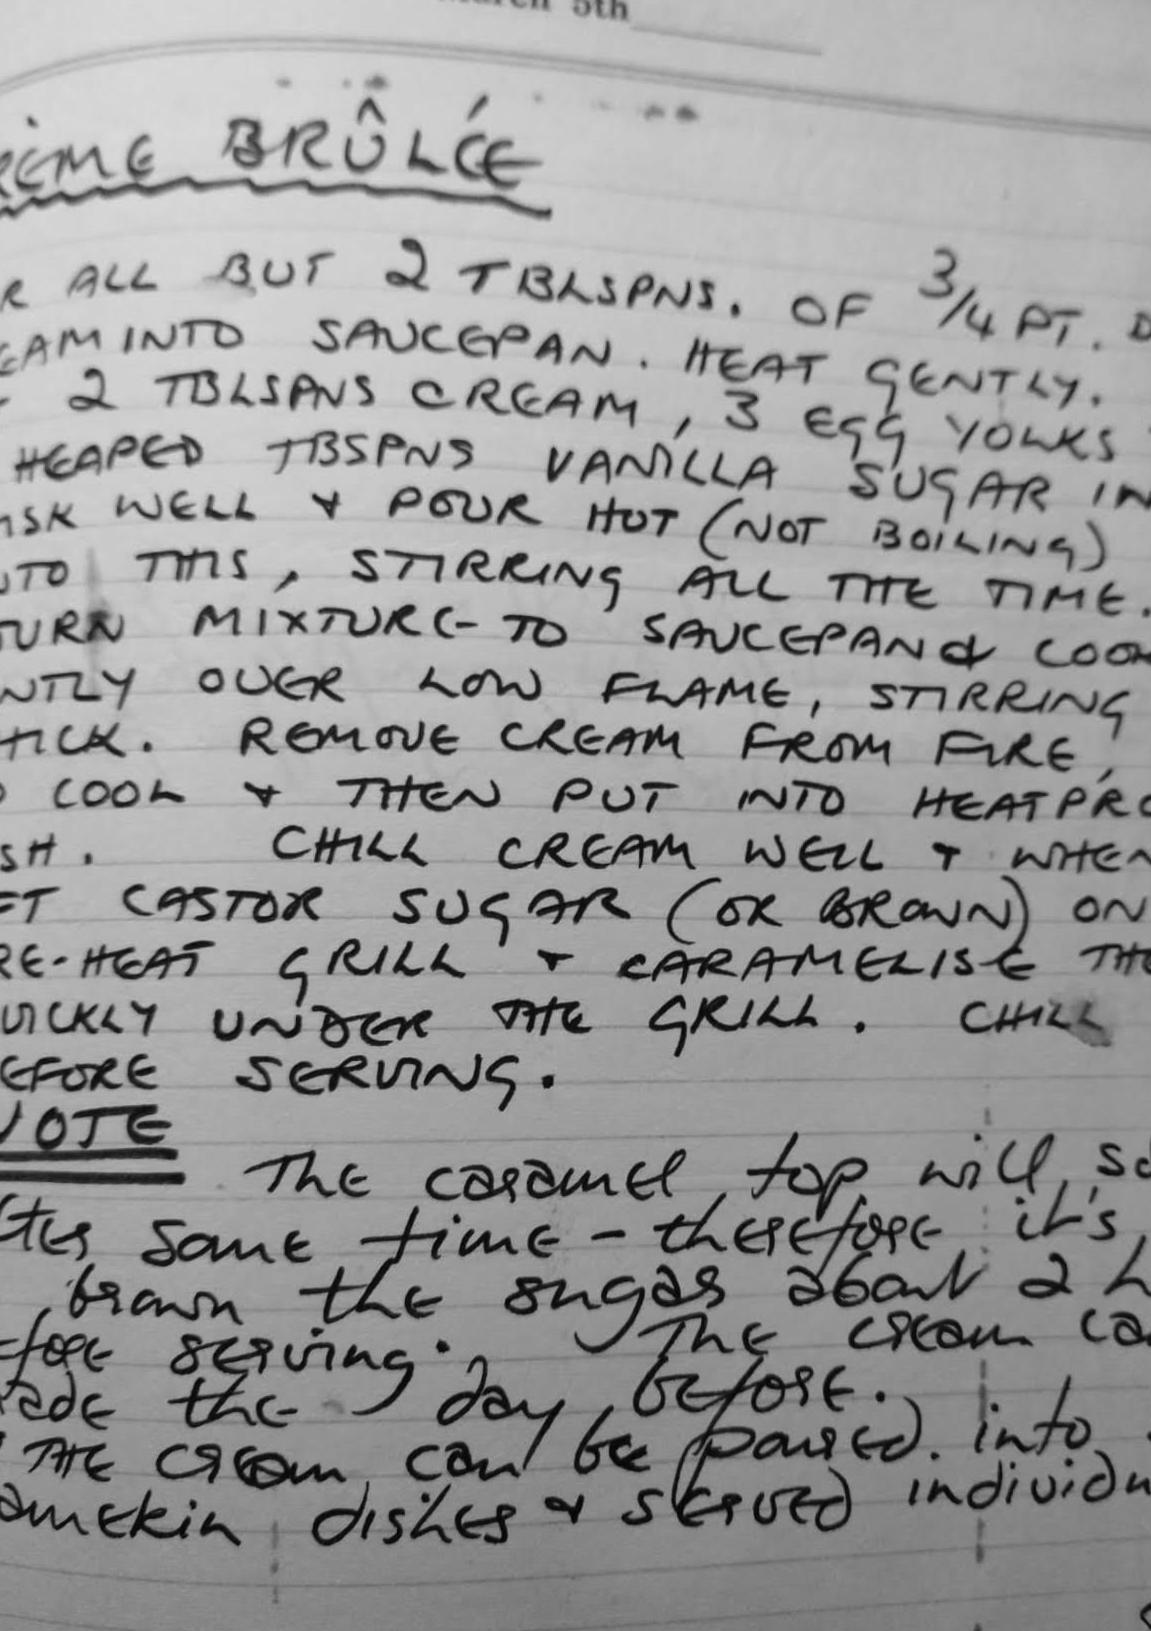 March 5th
CRÈME BRÛLÉE
R ALL BUT 2 TBLSPNS. OF 3/4 PT. D
EAM INTO SAUCEPAN. HEAT GENTLY.
2 TBLSPNS CREAM, 3 EGG YOLKS
HEAPED TBSPNS VANILLA SUGAR IN
ISK WELL & POUR HOT (NOT BOILING)
NTO THIS, STIRRING ALL THE TIME.
TURN MIXTURE TO SAUCEPAN & COOK
NTLY OVER LOW FLAME, STIRRING
HICK. REMOVE CREAM FROM FIRE,
O COOL & THEN PUT INTO HEATPRO
SH. CHILL CREAM WELL & WHEN
ET CASTOR SUGAR (OR BROWN) ON
RE-HEAT GRILL & CARAMELISE THE
UICKLY UNDER THE GRILL. CHILL
EFORE SERVING.
NOTE The caramel top will so
fter some time - therefore it's
brown the sugar about 2 h
fore serving. The cream ca
ade the day before.
THE cream can be poured into
amekin dishes & served individu